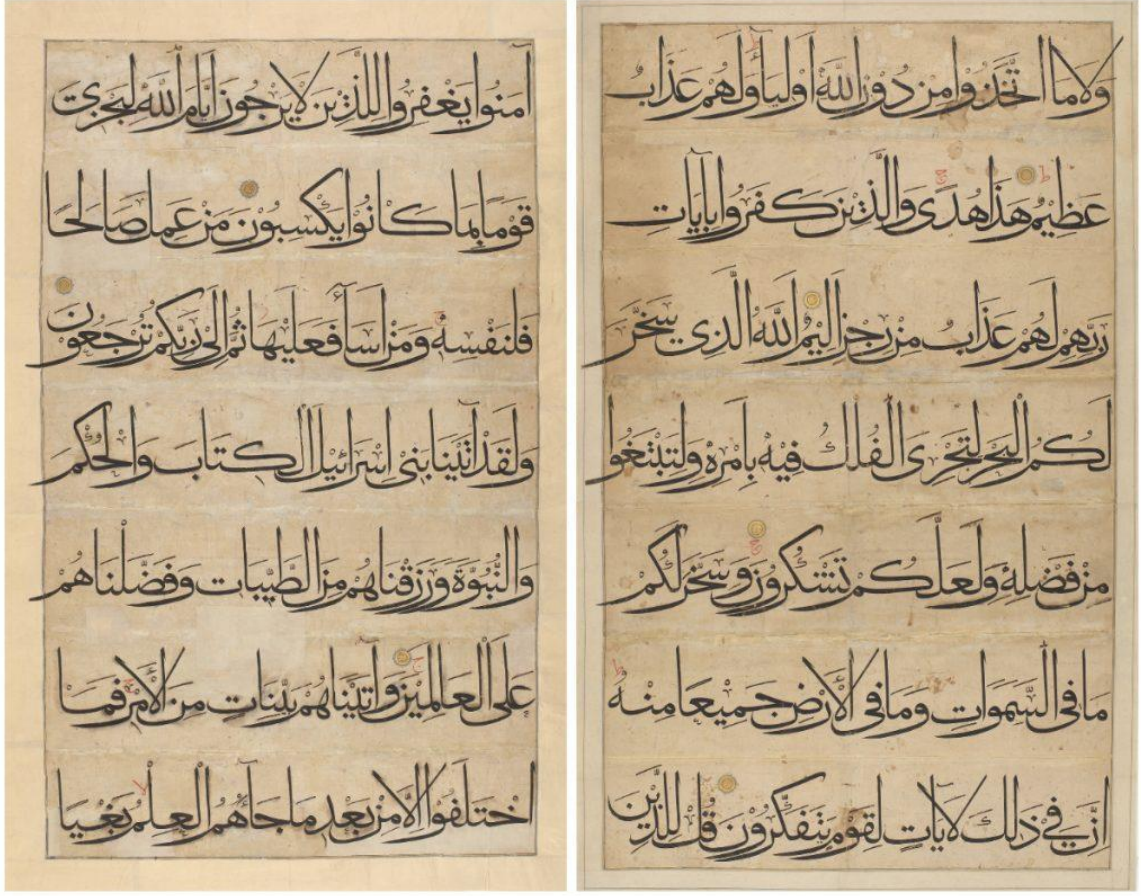 وَلَا مَا اتَّخَذُوا مِنْ دُونِ اللَّهِ أَوْلِيَاءَ وَلَهُمْ عَذَابٌ
عَظِيمٌ هَذَا هُدًى وَالَّذِينَ كَفَرُوا بِآيَاتِ
رَبِّهِمْ لَهُمْ عَذَابٌ مِنْ رِجْزٍ أَلِيمٌ اللَّهُ الَّذِي سَخَّرَ
لَكُمُ الْبَحْرَ لِتَجْرِيَ الْفُلْكُ فِيهِ بِأَمْرِهِ وَلِتَبْتَغُوا
مِنْ فَضْلِهِ وَلَعَلَّكُمْ تَشْكُرُونَ وَسَخَّرَ لَكُمْ
مَا فِي السَّمَوَاتِ وَمَا فِي الْأَرْضِ جَمِيعًا مِنْهُ
إِنَّ فِي ذَلِكَ لَآيَاتٍ لِقَوْمٍ يَتَفَكَّرُونَ قُلْ لِلَّذِينَ
آمَنُوا يَغْفِرُوا لِلَّذِينَ لَا يَرْجُونَ أَيَّامَ اللَّهِ لِيَجْزِيَ
قَوْمًا بِمَا كَانُوا يَكْسِبُونَ مَنْ عَمِلَ صَالِحًا
فَلِنَفْسِهِ وَمَنْ أَسَاءَ فَعَلَيْهَا ثُمَّ إِلَى رَبِّكُمْ تُرْجَعُونَ
وَلَقَدْ آتَيْنَا بَنِي إِسْرَائِيلَ الْكِتَابَ وَالْحُكْمَ
وَالنُّبُوَّةَ وَرَزَقْنَاهُمْ مِنَ الطَّيِّبَاتِ وَفَضَّلْنَاهُمْ
عَلَى الْعَالَمِينَ وَآتَيْنَاهُمْ بَيِّنَاتٍ مِنَ الْأَمْرِ فَمَا
اخْتَلَفُوا إِلَّا مِنْ بَعْدِ مَا جَاءَهُمُ الْعِلْمُ بَغْيًا